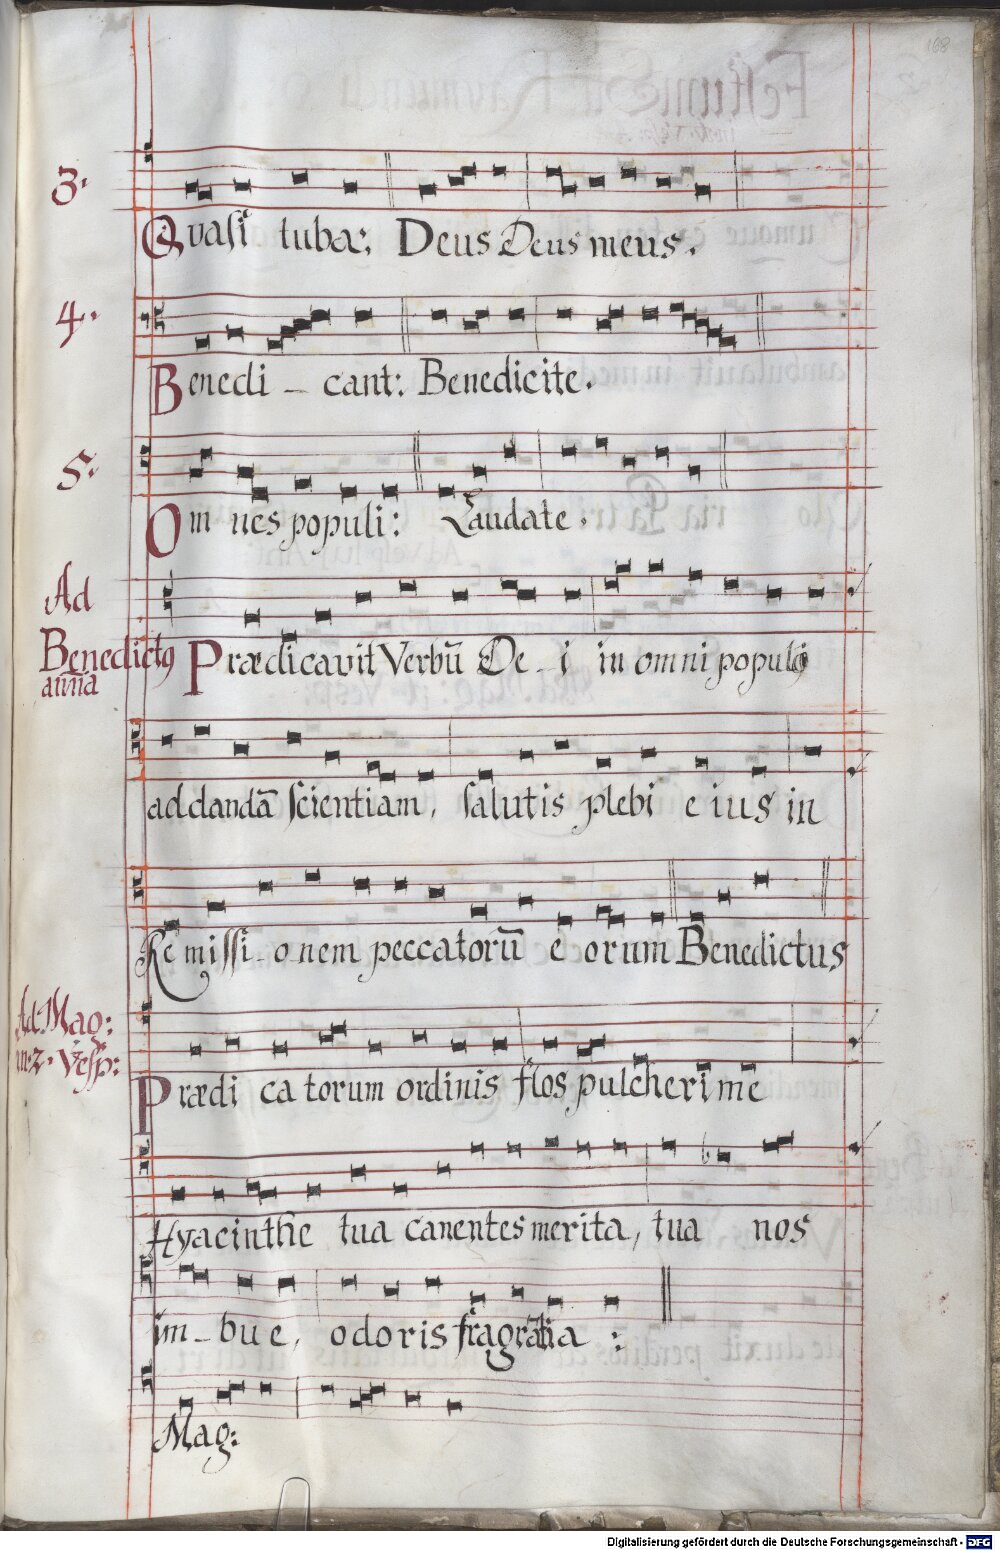 168
3. Quasi tuba: Deus Deus meus.
4. Benedi - cant: Benedicite.
5. Omnes populi: Laudate.
Ad Benedictꝰ anña Prædicavit Verbũ De - i in omni populo
ad dandã scientiam, salutis plebi eius in
Remissi - onem peccatorũ eorum Benedictus
Ad. Mag: in. 2. Vesp: Prædicatorum ordinis flos pulcherime
Hyacinthe tua canentes merita, tua nos
im - bue, odoris fragrãtia :
Mag:
Digitalisierung gefördert durch die Deutsche Forschungsgemeinschaft - DFG